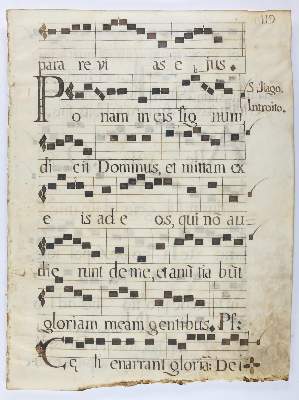 119
para re vi as e jus.
S. Jiago.
Introito.
Po nam in eis sig num
di cit Dominus, et mittam ex
e is ad e os, qui nō au
die runt de me, et anū tia būt
gloriam meam gentibus. Ps:
Cę li enarrant gloriā: Dei